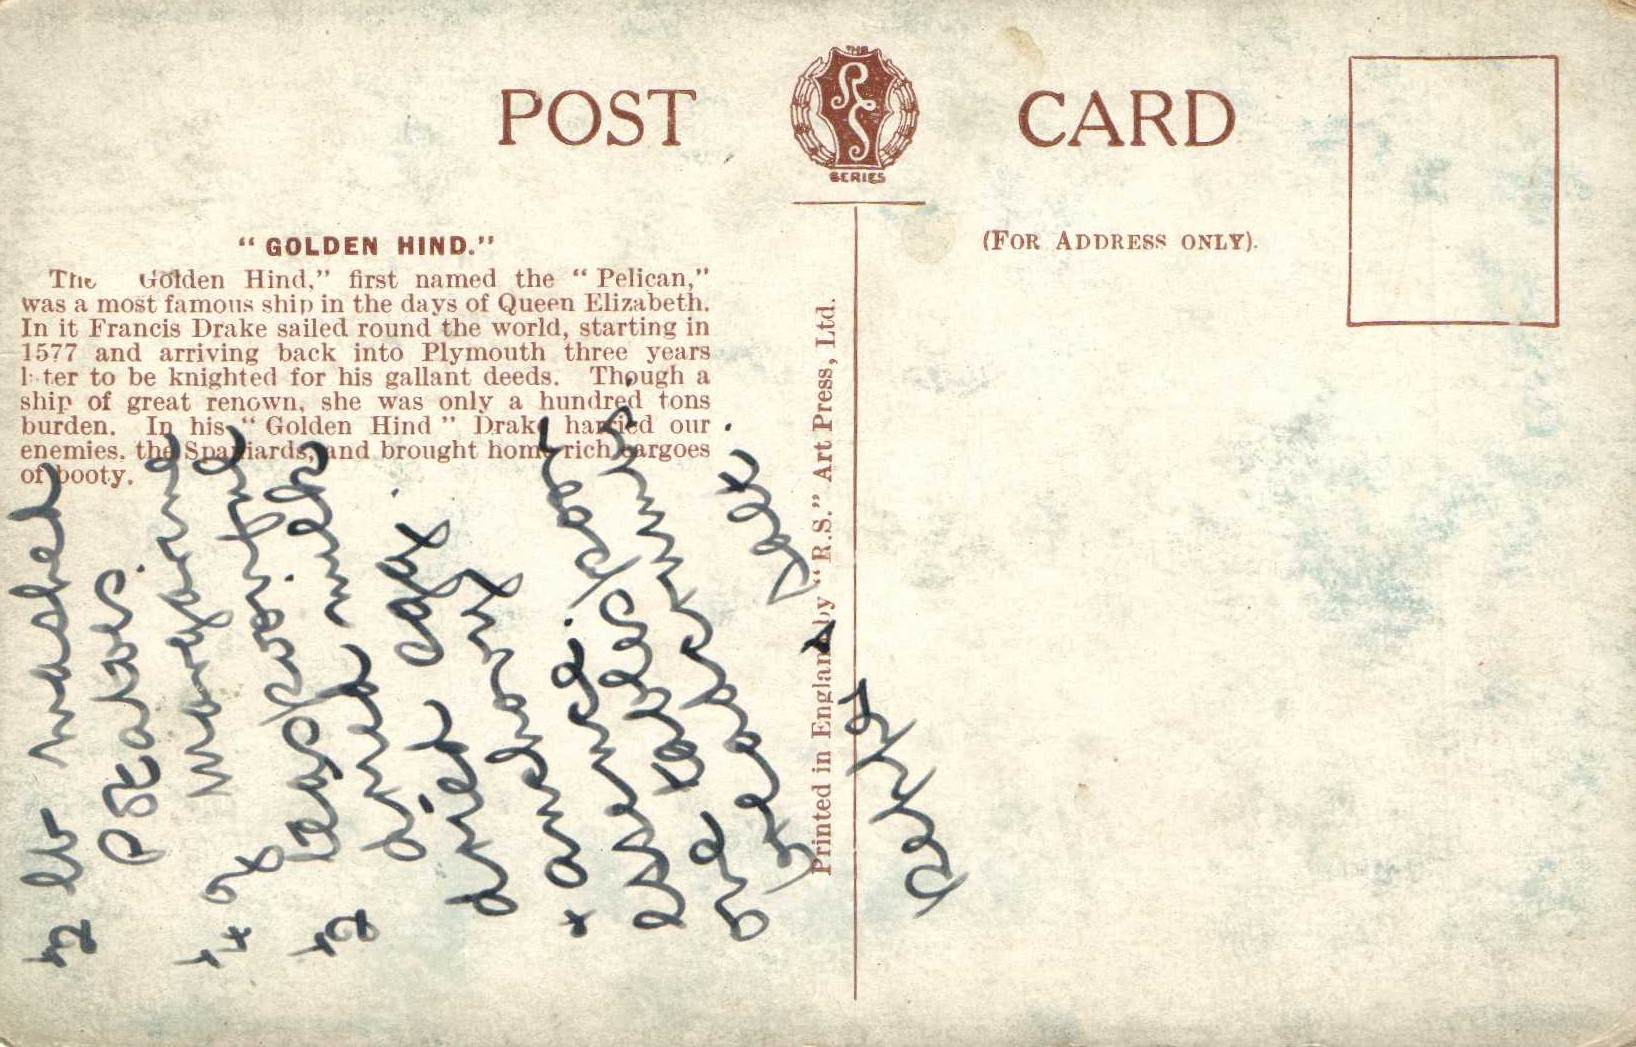 POST CARD
THE
RS
SERIES
"GOLDEN HIND."
The Golden Hind," first named the "Pelican,"
was a most famous ship in the days of Queen Elizabeth.
In it Francis Drake sailed round the world, starting in
1577 and arriving back into Plymouth three years
later to be knighted for his gallant deeds. Though a
ship of great renown, she was only a hundred tons
burden. In his "Golden Hind" Drake harried our
enemies, the Spaniards, and brought home rich cargoes
of booty.
(FOR ADDRESS ONLY).
Printed in England by "R.S." Art Press, Ltd.
½ lb mashed
Potatoes.
¼ oz margarine
teaspoonful
½ dried milk
dried egg.
anchovy
essence